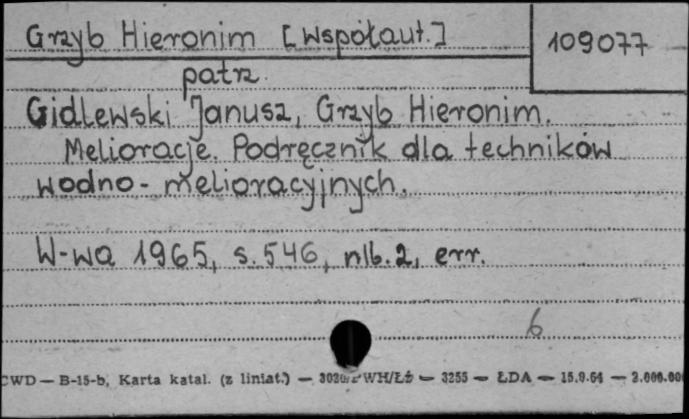 Grzyb Hieronim [współaut.] 109077
patrz
Gidlewski Janusz, Grzyb Hieronim.
Melioracje. Podręcznik dla techników
wodno-melioracyjnych.
W-wa 1965, s. 546, nlb. 2, err.
6
CWD — B-15-b, Karta katal. (z liniat.) — WH/Łż — 3255 — ŁDA — 15.9.64 — 2.000.000